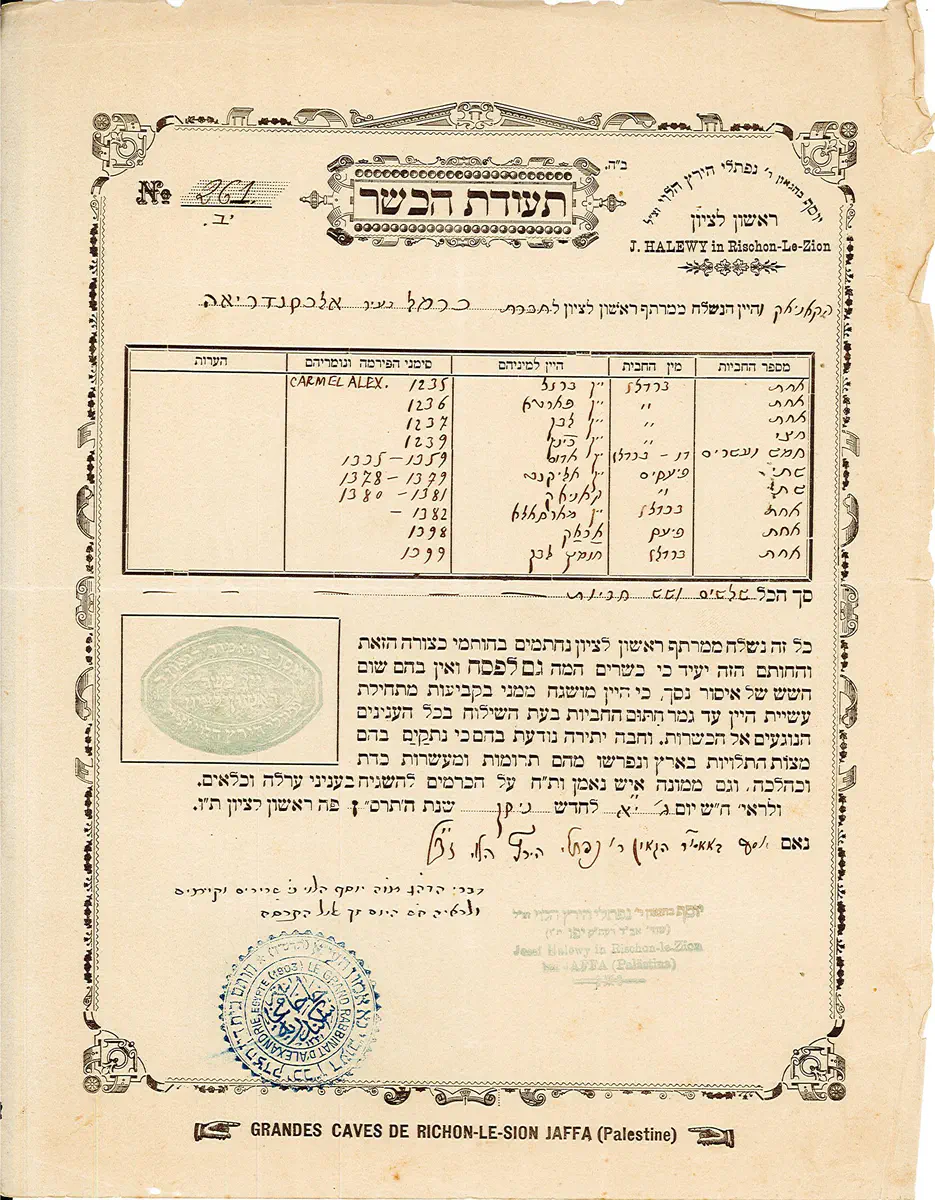 ב"ה.
No 261.
יב.
תעודת הכשר
יוסף בהגאון ר' נפתלי הירץ הלוי זצ"ל
ראשון לציון
J. HALEWY in Rischon-Le-Zion
הקאניאק והיין הנשלח ממרתף ראשון לציון לחברת כרמל בעיר אלכסנדריאה
מספר החביות מין החבית היין למיניהם סימני הפירמה ונומריהם הערות
אחת ברדלז יין CARMEL ALEX. 1235
אחת " יין 1236
אחת " יין לבן 1237
חצי " יין 1239
חמש ועשרים יין אדום 1335–1359
שתי יין אליקנטה 1378–1379
שתי " קאניאק 1380–1381
אחת יין 1382
אחת אראק 1398
אחת חומץ לבן 1399
סך הכל שלשים ושש חביות
כל זה נשלח ממרתף ראשון לציון נחתמים בחותמי כצורה הזאת
והחותם הזה יעיד כי כשרים המה גם לפסח ואין בהם שום
חשש של איסור נסך, כי היין מושגח ממני בקביעות מתחילת
עשיית היין עד גמר חתום החביות בעת השילוח בכל הענינים
הנוגעים אל הכשרות. וחבה יתירה נודעת בהם כי נתקימו בהם
מצות התלויות בארץ ונפרשו מהם תרומות ומעשרות כדת
וכהלכה, וגם ממונה איש נאמן ות"ח על הכרמים להשגיח בעניני ערלה וכלאים.
ולראי' ח"ש יום ג' י"א לחדש ניסן שנת ה'תרס"ז פה ראשון לציון ת"ו.
נאם יוסף באאמו"ר הגאון ר' נפתלי הירץ הלוי זצ"ל
דברי הרה"ג מוה' יוסף הלוי נ"י שרירים וקיימים
ולראיה
יוסף בהגאון ר' נפתלי הירץ הלוי ז"ל
Josef Halewy in Rischon-le-Zion
bei JAFFA (Palästina)
LE GRAND RABBINAT D'ALEXANDRIE, EGYPTE (1903)
GRANDES CAVES DE RICHON-LE-SION JAFFA (Palestine)